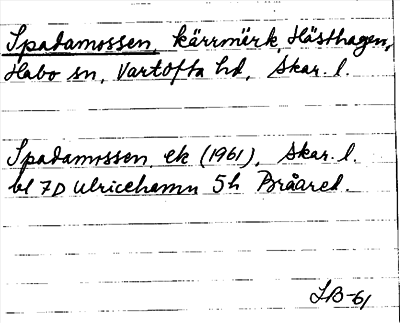 Spadamossen, kärrmark, Hästhagen,
Habo sn, Vartofta hd, Skar. l.
Spadamossen, ek (1961), Skar. l.
bl 7D Ulricehamn 5h Bråared.
LB-61